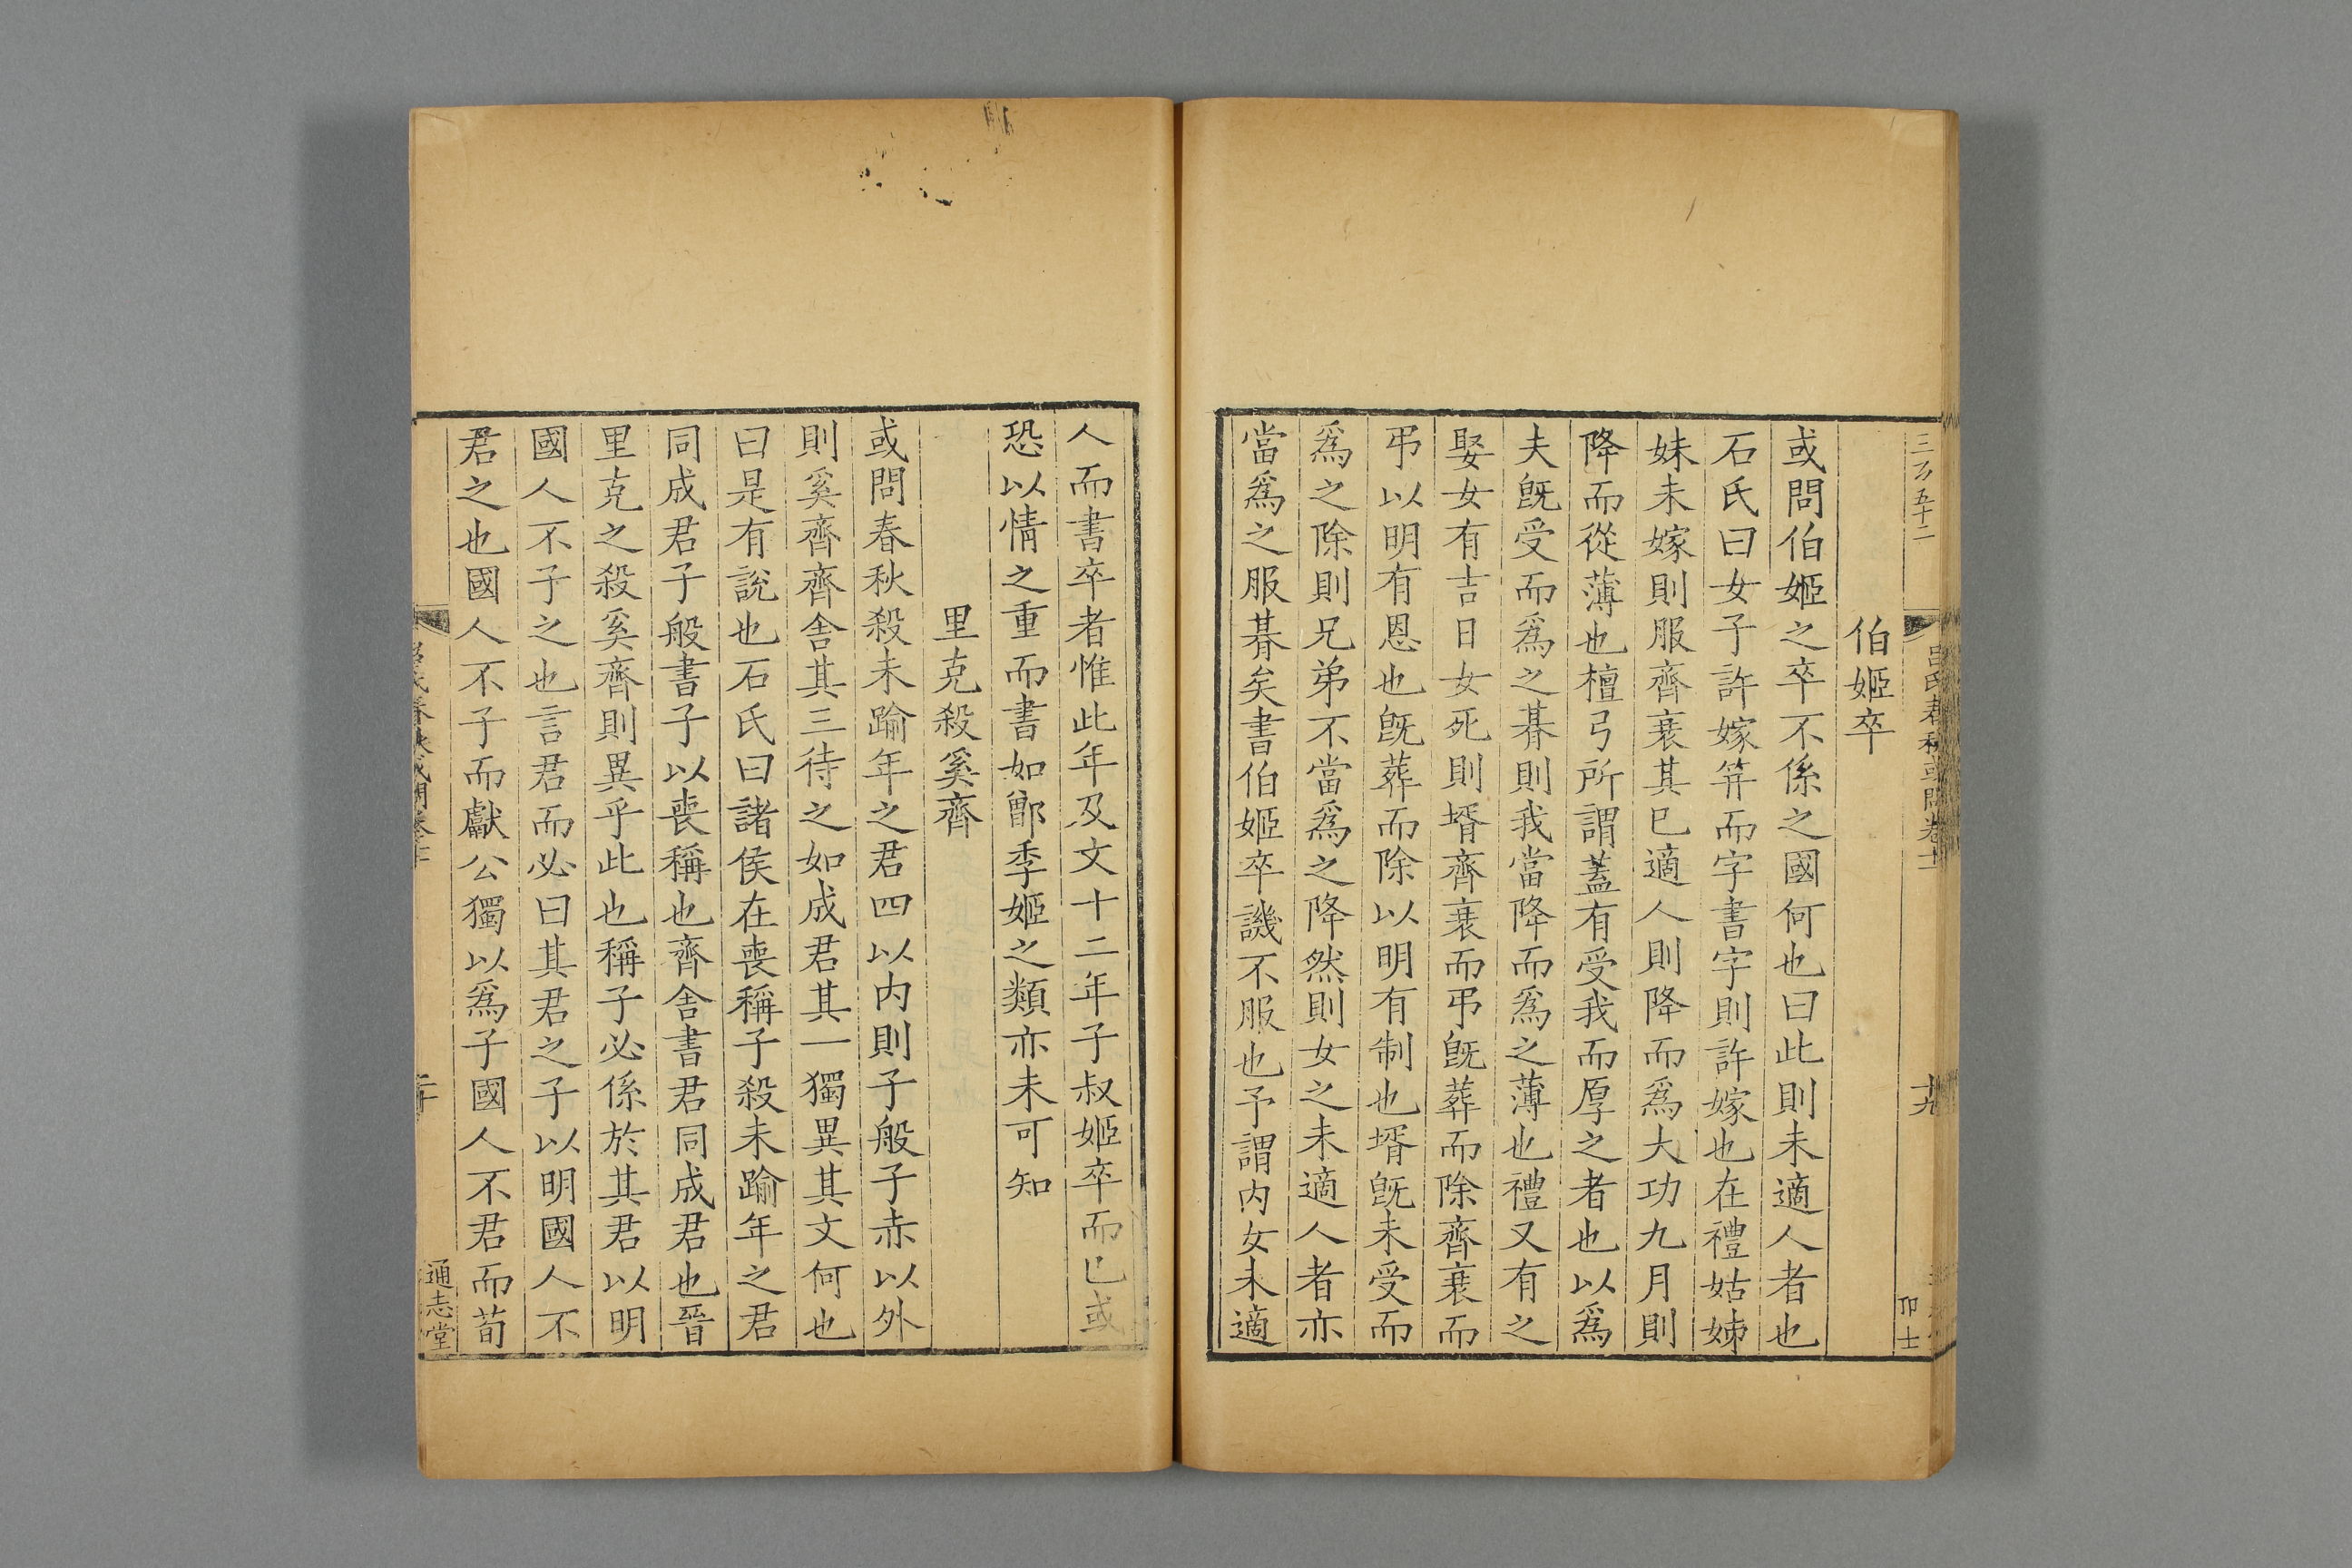 三百五十二
呂氏春秋或問卷十一
十九
卬士
伯姬卒
或問伯姬之卒不係之國何也曰此則未適人者也
石氏曰女子許嫁笄而字書字則許嫁也在禮姑姊
妹未嫁則服齊衰其已適人則降而爲大功九月則
降而從薄也檀弓所謂蓋有受我而厚之者也以爲
夫旣受而爲之朞則我當降而爲之薄也禮又有之
娶女有吉日女死則壻齊衰而弔旣葬而除齊衰而
弔以明有恩也旣葬而除以明有制也壻旣未受而
爲之除則兄弟不當爲之降然則女之未適人者亦
當爲之服朞矣書伯姬卒譏不服也予謂内女未適
人而書卒者惟此年及文十二年子叔姬卒而已或
恐以情之重而書如鄫季姬之類亦未可知
里克殺奚齊
或問春秋殺未踰年之君四以内則子般子赤以外
則奚齊齊舍其三待之如成君其一獨異其文何也
曰是有說也石氏曰諸侯在喪稱子殺未踰年之君
同成君子般書子以喪稱也齊舍書君同成君也晉
里克之殺奚齊則異乎此也稱子必係於其君以明
國人不子之也言君而必曰其君之子以明國人不
君之也國人不子而獻公獨以爲子國人不君而荀
呂氏春秋或問卷十一
二十
通志堂